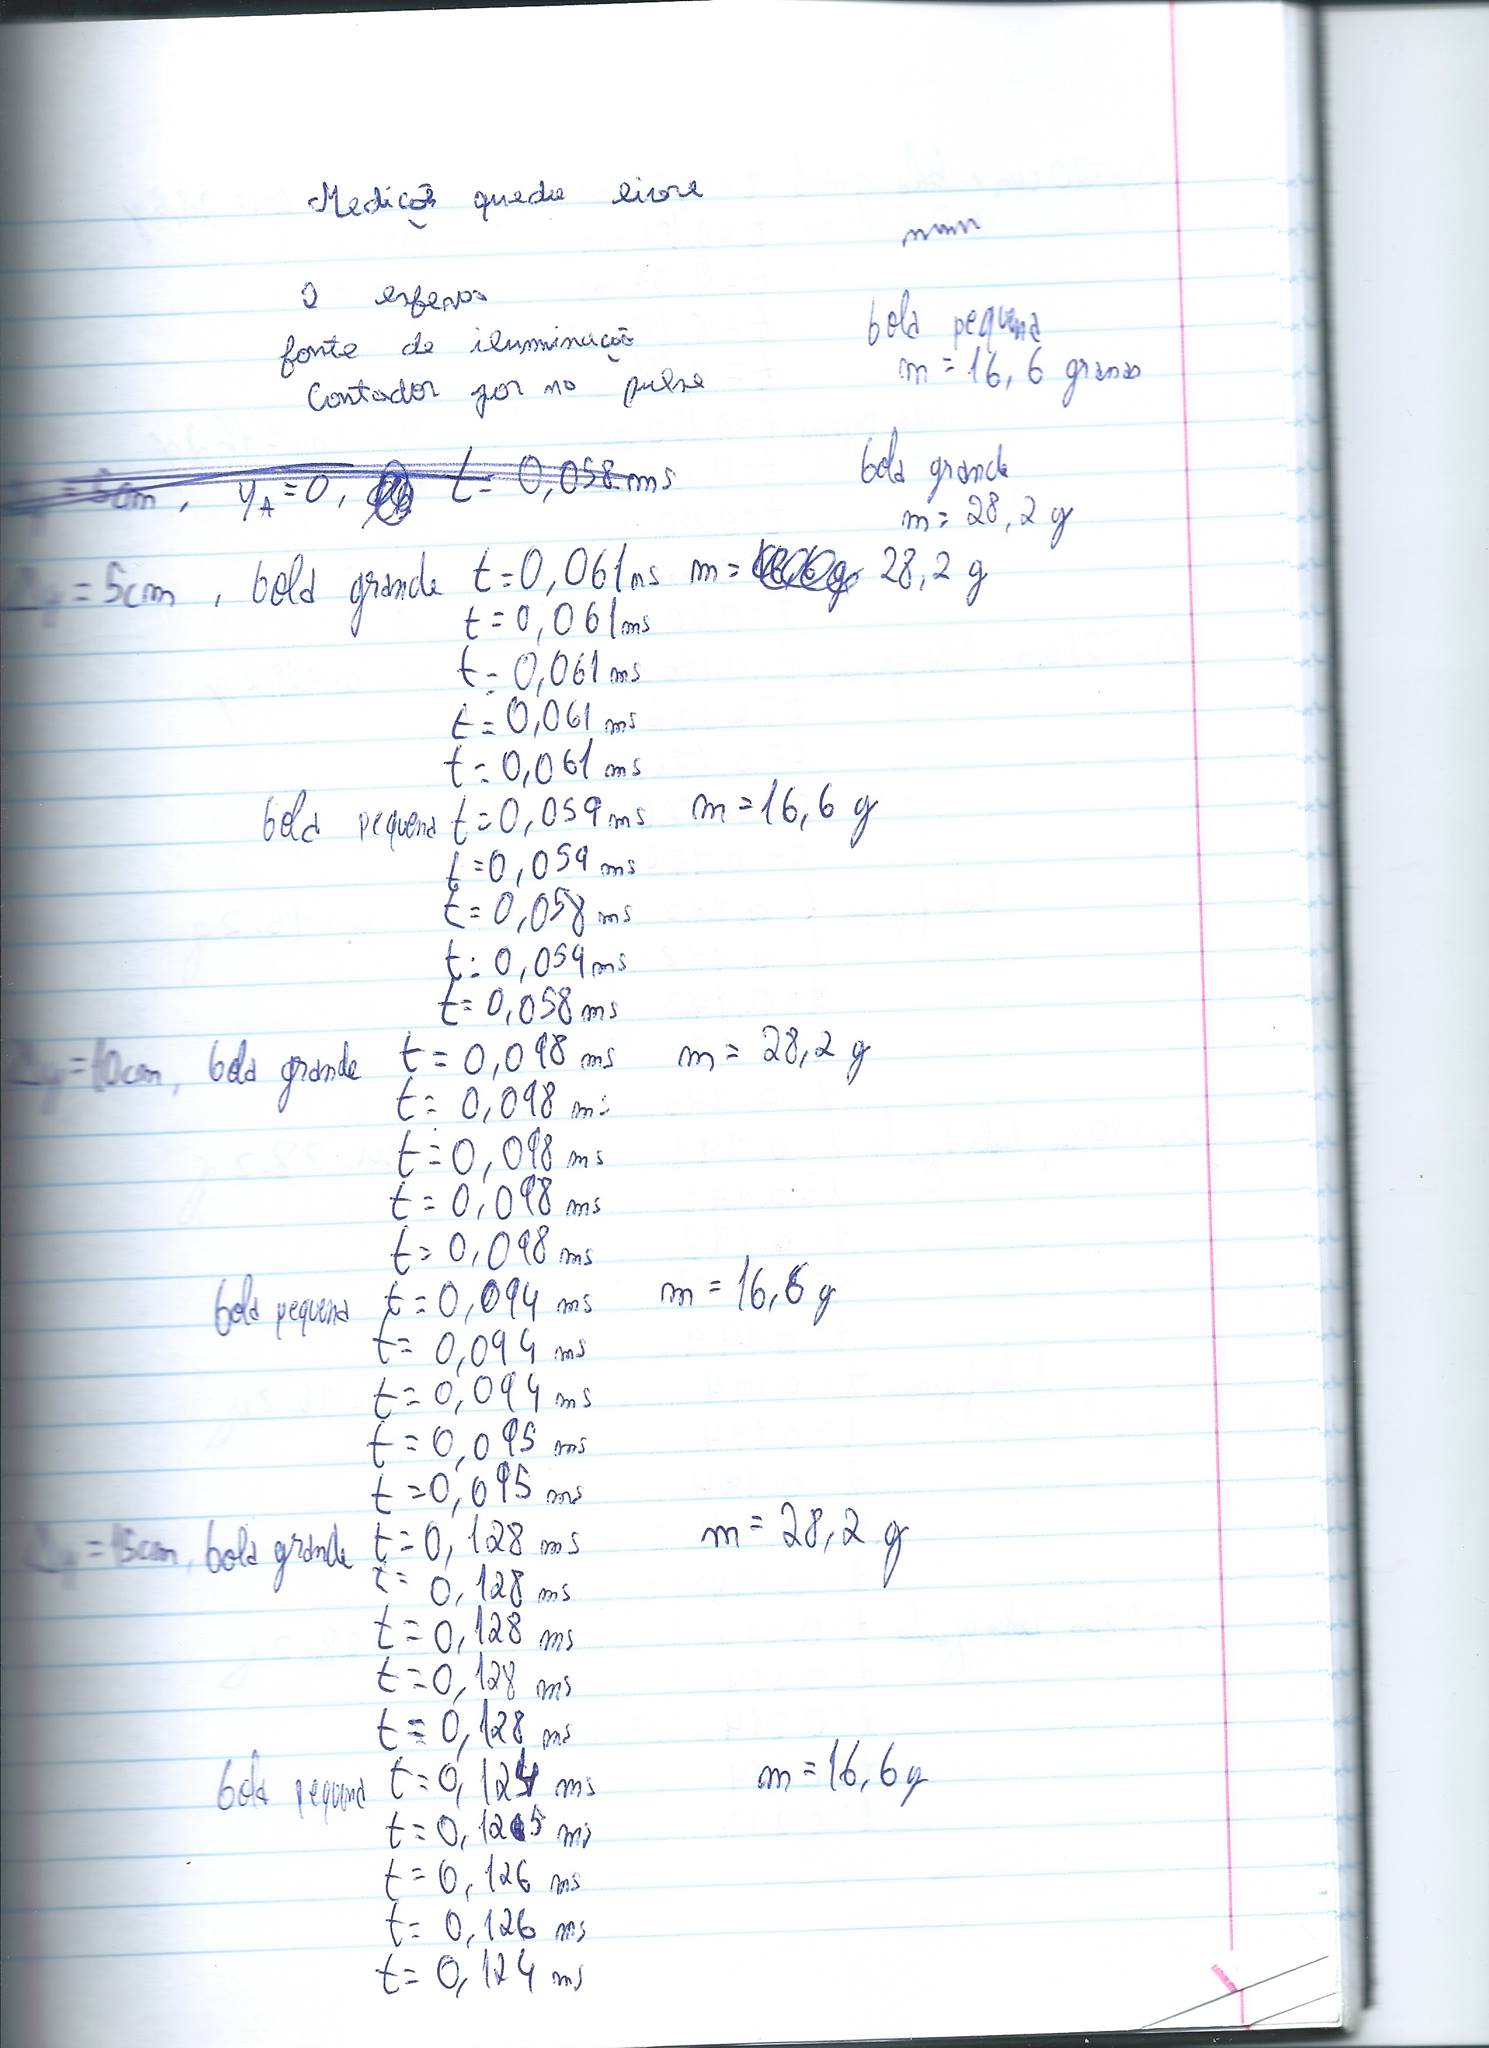 Medição queda livre
2 esferas
fonte de iluminação
Contador por no pulse
bola pequena
m = 16,6 gramas
bola grande
m = 28,2 g
= 5cm, yA = 0, t = 0,058 ms
Δy = 5cm, bola grande t = 0,061 ms m = 28,2 g
t = 0,061 ms
t = 0,061 ms
t = 0,061 ms
t = 0,061 ms
bola pequena t = 0,059 ms m = 16,6 g
t = 0,059 ms
t = 0,058 ms
t = 0,059 ms
t = 0,058 ms
Δy = 10cm, bola grande t = 0,098 ms m = 28,2 g
t = 0,098 ms
t = 0,098 ms
t = 0,098 ms
t = 0,098 ms
bola pequena t = 0,094 ms m = 16,6 g
t = 0,094 ms
t = 0,094 ms
t = 0,095 ms
t = 0,095 ms
Δy = 15cm, bola grande t = 0,128 ms m = 28,2 g
t = 0,128 ms
t = 0,128 ms
t = 0,128 ms
t = 0,128 ms
bola pequena t = 0,124 ms m = 16,6 g
t = 0,125 ms
t = 0,126 ms
t = 0,126 ms
t = 0,124 ms